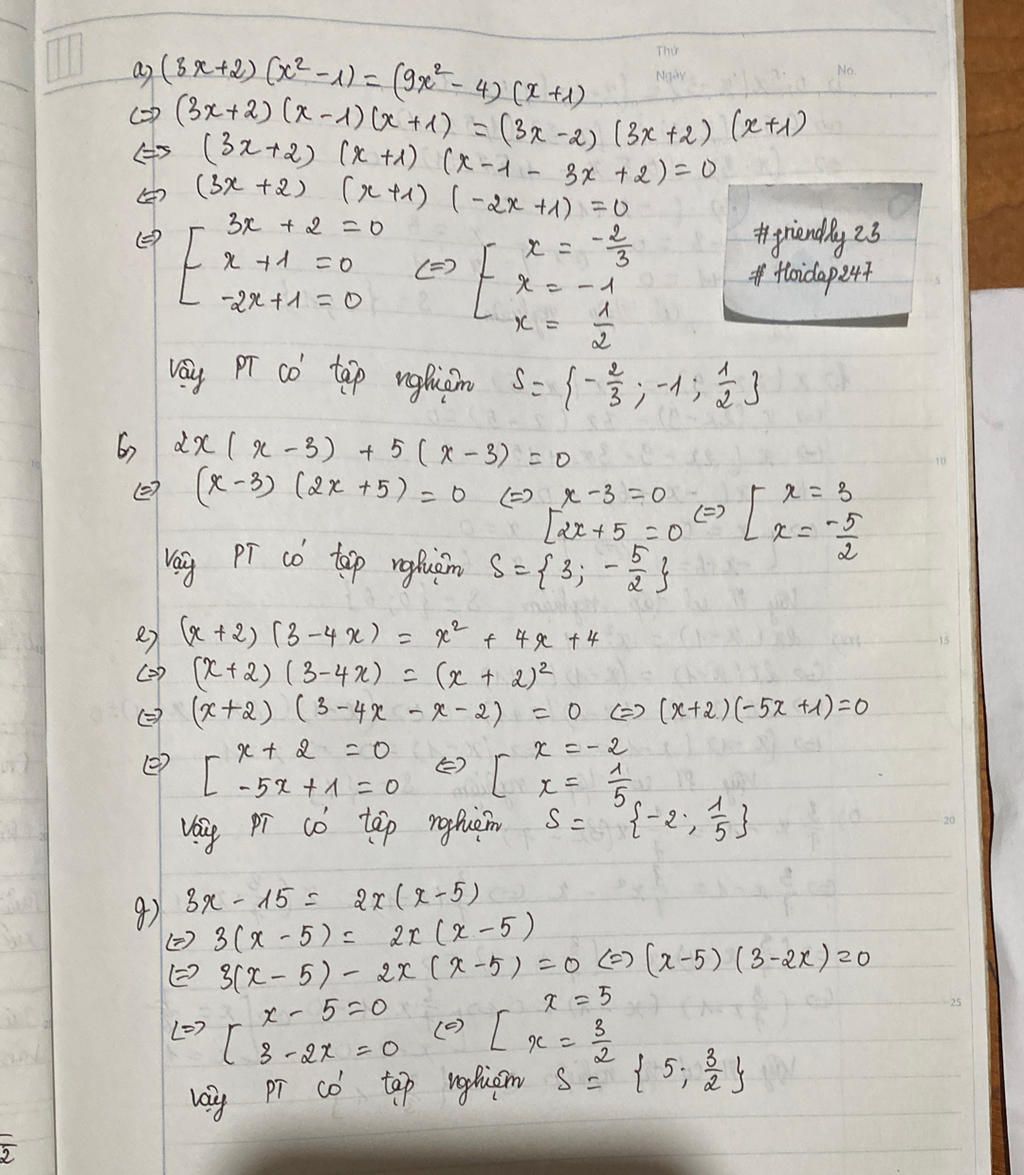 Thứ
Ngày
No.
a) (3x+2)(x² - 1) = (9x² - 4)(x+1)
<=> (3x+2)(x-1)(x+1) = (3x-2)(3x+2)(x+1)
<=> (3x+2)(x+1)(x-1 - 3x+2) = 0
<=> (3x+2)(x+1)(-2x+1) = 0
<=> [ 3x+2 = 0 <=> [ x = -2/3
x+1 = 0 x = -1
-2x+1 = 0 x = 1/2
#friendly23
# Hoidap247
Vậy PT có tập nghiệm S = {-2/3; -1; 1/2}
b) 2x(x-3) + 5(x-3) = 0
<=> (x-3)(2x+5) = 0 <=> [ x-3 = 0 <=> [ x = 3
2x+5 = 0 x = -5/2
Vậy PT có tập nghiệm S = {3; -5/2}
e) (x+2)(3-4x) = x² + 4x + 4
<=> (x+2)(3-4x) = (x+2)²
<=> (x+2)(3-4x-x-2) = 0 <=> (x+2)(-5x+1) = 0
<=> [ x+2 = 0 <=> [ x = -2
-5x+1 = 0 x = 1/5
Vậy PT có tập nghiệm S = {-2; 1/5}
g) 3x - 15 = 2x(x-5)
<=> 3(x-5) = 2x(x-5)
<=> 3(x-5) - 2x(x-5) = 0 <=> (x-5)(3-2x) = 0
<=> [ x-5 = 0 <=> [ x = 5
3-2x = 0 x = 3/2
Vậy PT có tập nghiệm S = {5; 3/2}